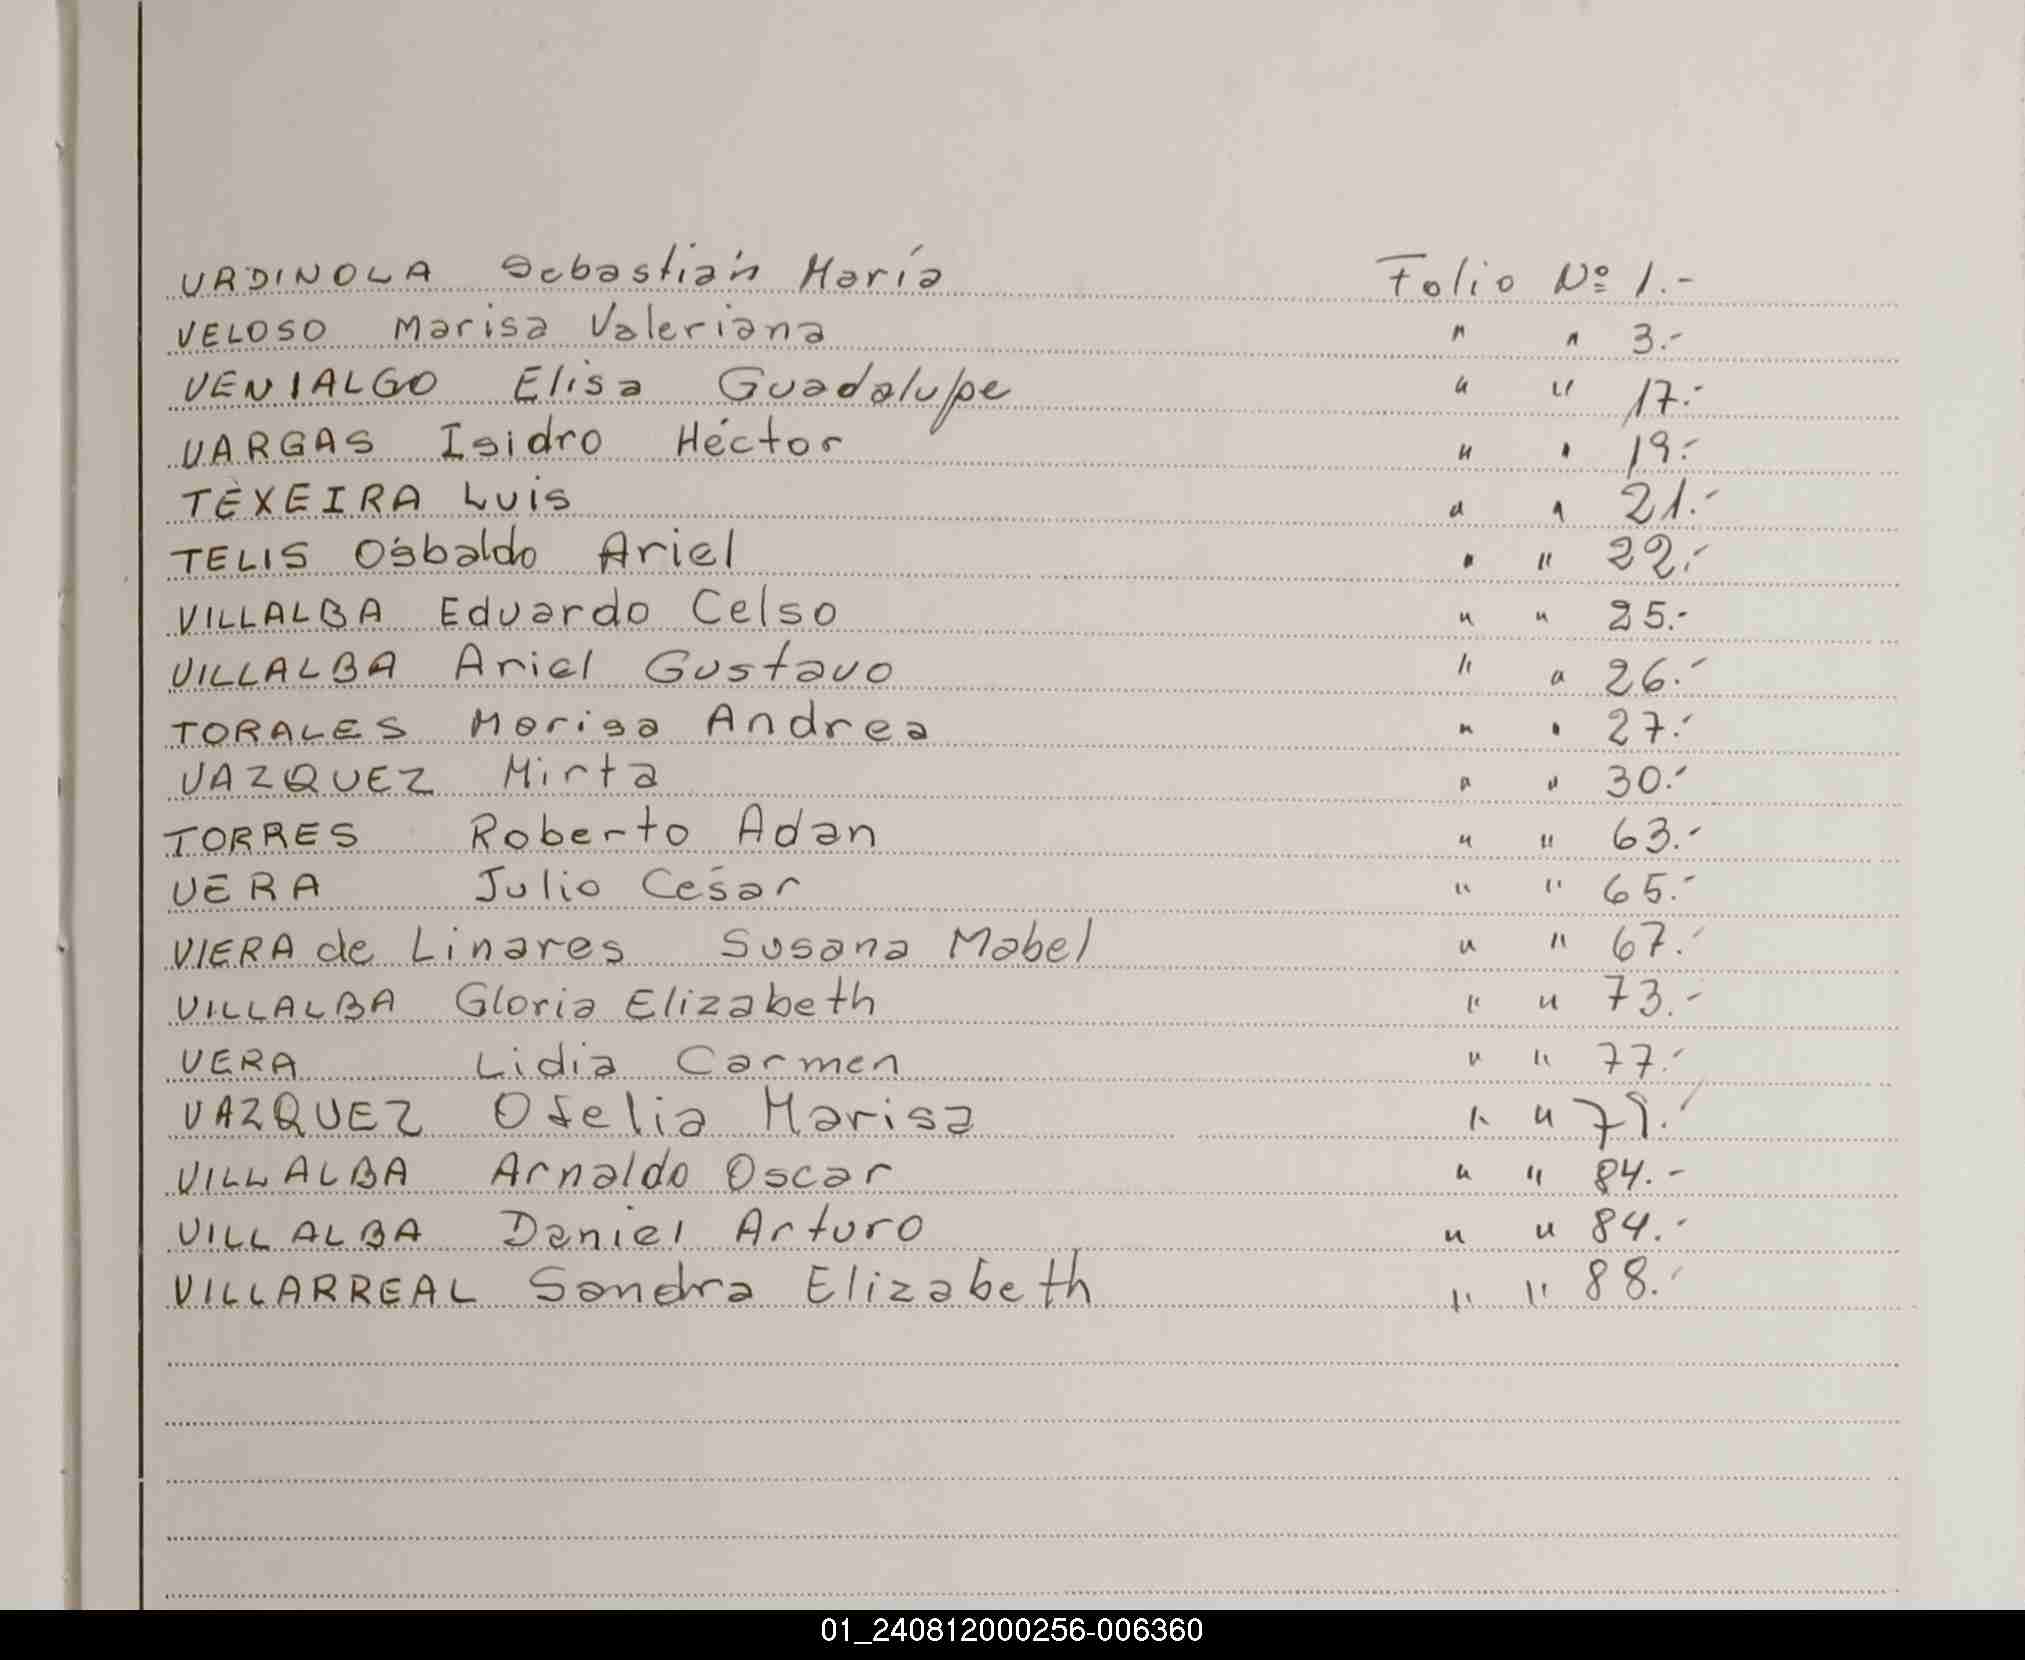 URDINOLA Sebastián María Folio Nº 1.-
VELOSO Marisa Valeriana " " 3.-
VENIALGO Elisa Guadalupe " " 17.-
VARGAS Isidro Héctor " " 19.-
TEXEIRA Luis " " 21.-
TELIS Osbaldo Ariel " " 22.-
VILLALBA Eduardo Celso " " 25.-
VILLALBA Ariel Gustavo " " 26.-
TORALES Marisa Andrea " " 27.-
VAZQUEZ Mirta " " 30.-
TORRES Roberto Adan " " 63.-
VERA Julio César " " 65.-
VIERA de Linares Susana Mabel " " 67.-
VILLALBA Gloria Elizabeth " " 73.-
VERA Lidia Carmen " " 77.-
VAZQUEZ Ofelia Marisa " " 79.-
VILLALBA Arnaldo Oscar " " 84.-
VILLALBA Daniel Arturo " " 84.-
VILLARREAL Sandra Elizabeth " " 88.-
01_240812000256-006360